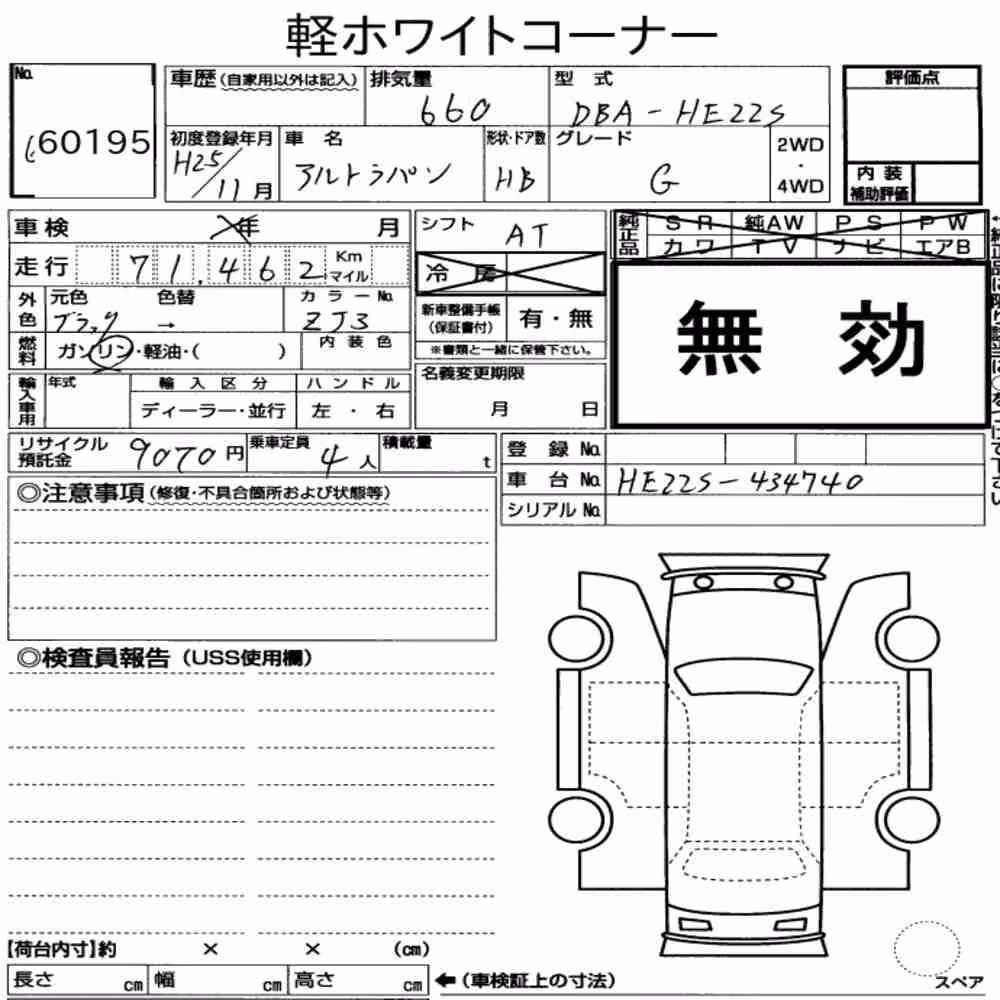 軽ホワイトコーナー
No. 60195
車歴(自家用以外は記入) 排気量 660 型式 DBA-HE22S 評価点
初度登録年月 H25/11月 車名 アルトラパン 形状・ドア数 HB グレード G 2WD・4WD
内装補助評価
車検 年 月 シフト AT 純正品 SR 純AW PS PW
カワ TV ナビ エアB
走行 71,462 Km マイル 冷房
無効
外色 元色 ブラック 色替 → カラーNo. ZJ3
新車整備手帳(保証書付) 有・無
※書類と一緒に保管下さい。
燃料 ガソリン・軽油・( ) 内装色
輸入車用 年式 輸入区分 ハンドル
ディーラー・並行 左・右
名義変更期限
月 日
リサイクル預託金 9070円 乗車定員 4人 積載量 t
登録No.
車台No. HE22S-434740
シリアルNo.
◎注意事項(修復・不具合箇所および状態等)
◎検査員報告(USS使用欄)
【荷台内寸】約 × × (cm)
長さ cm 幅 cm 高さ cm ←(車検証上の寸法)
スペア